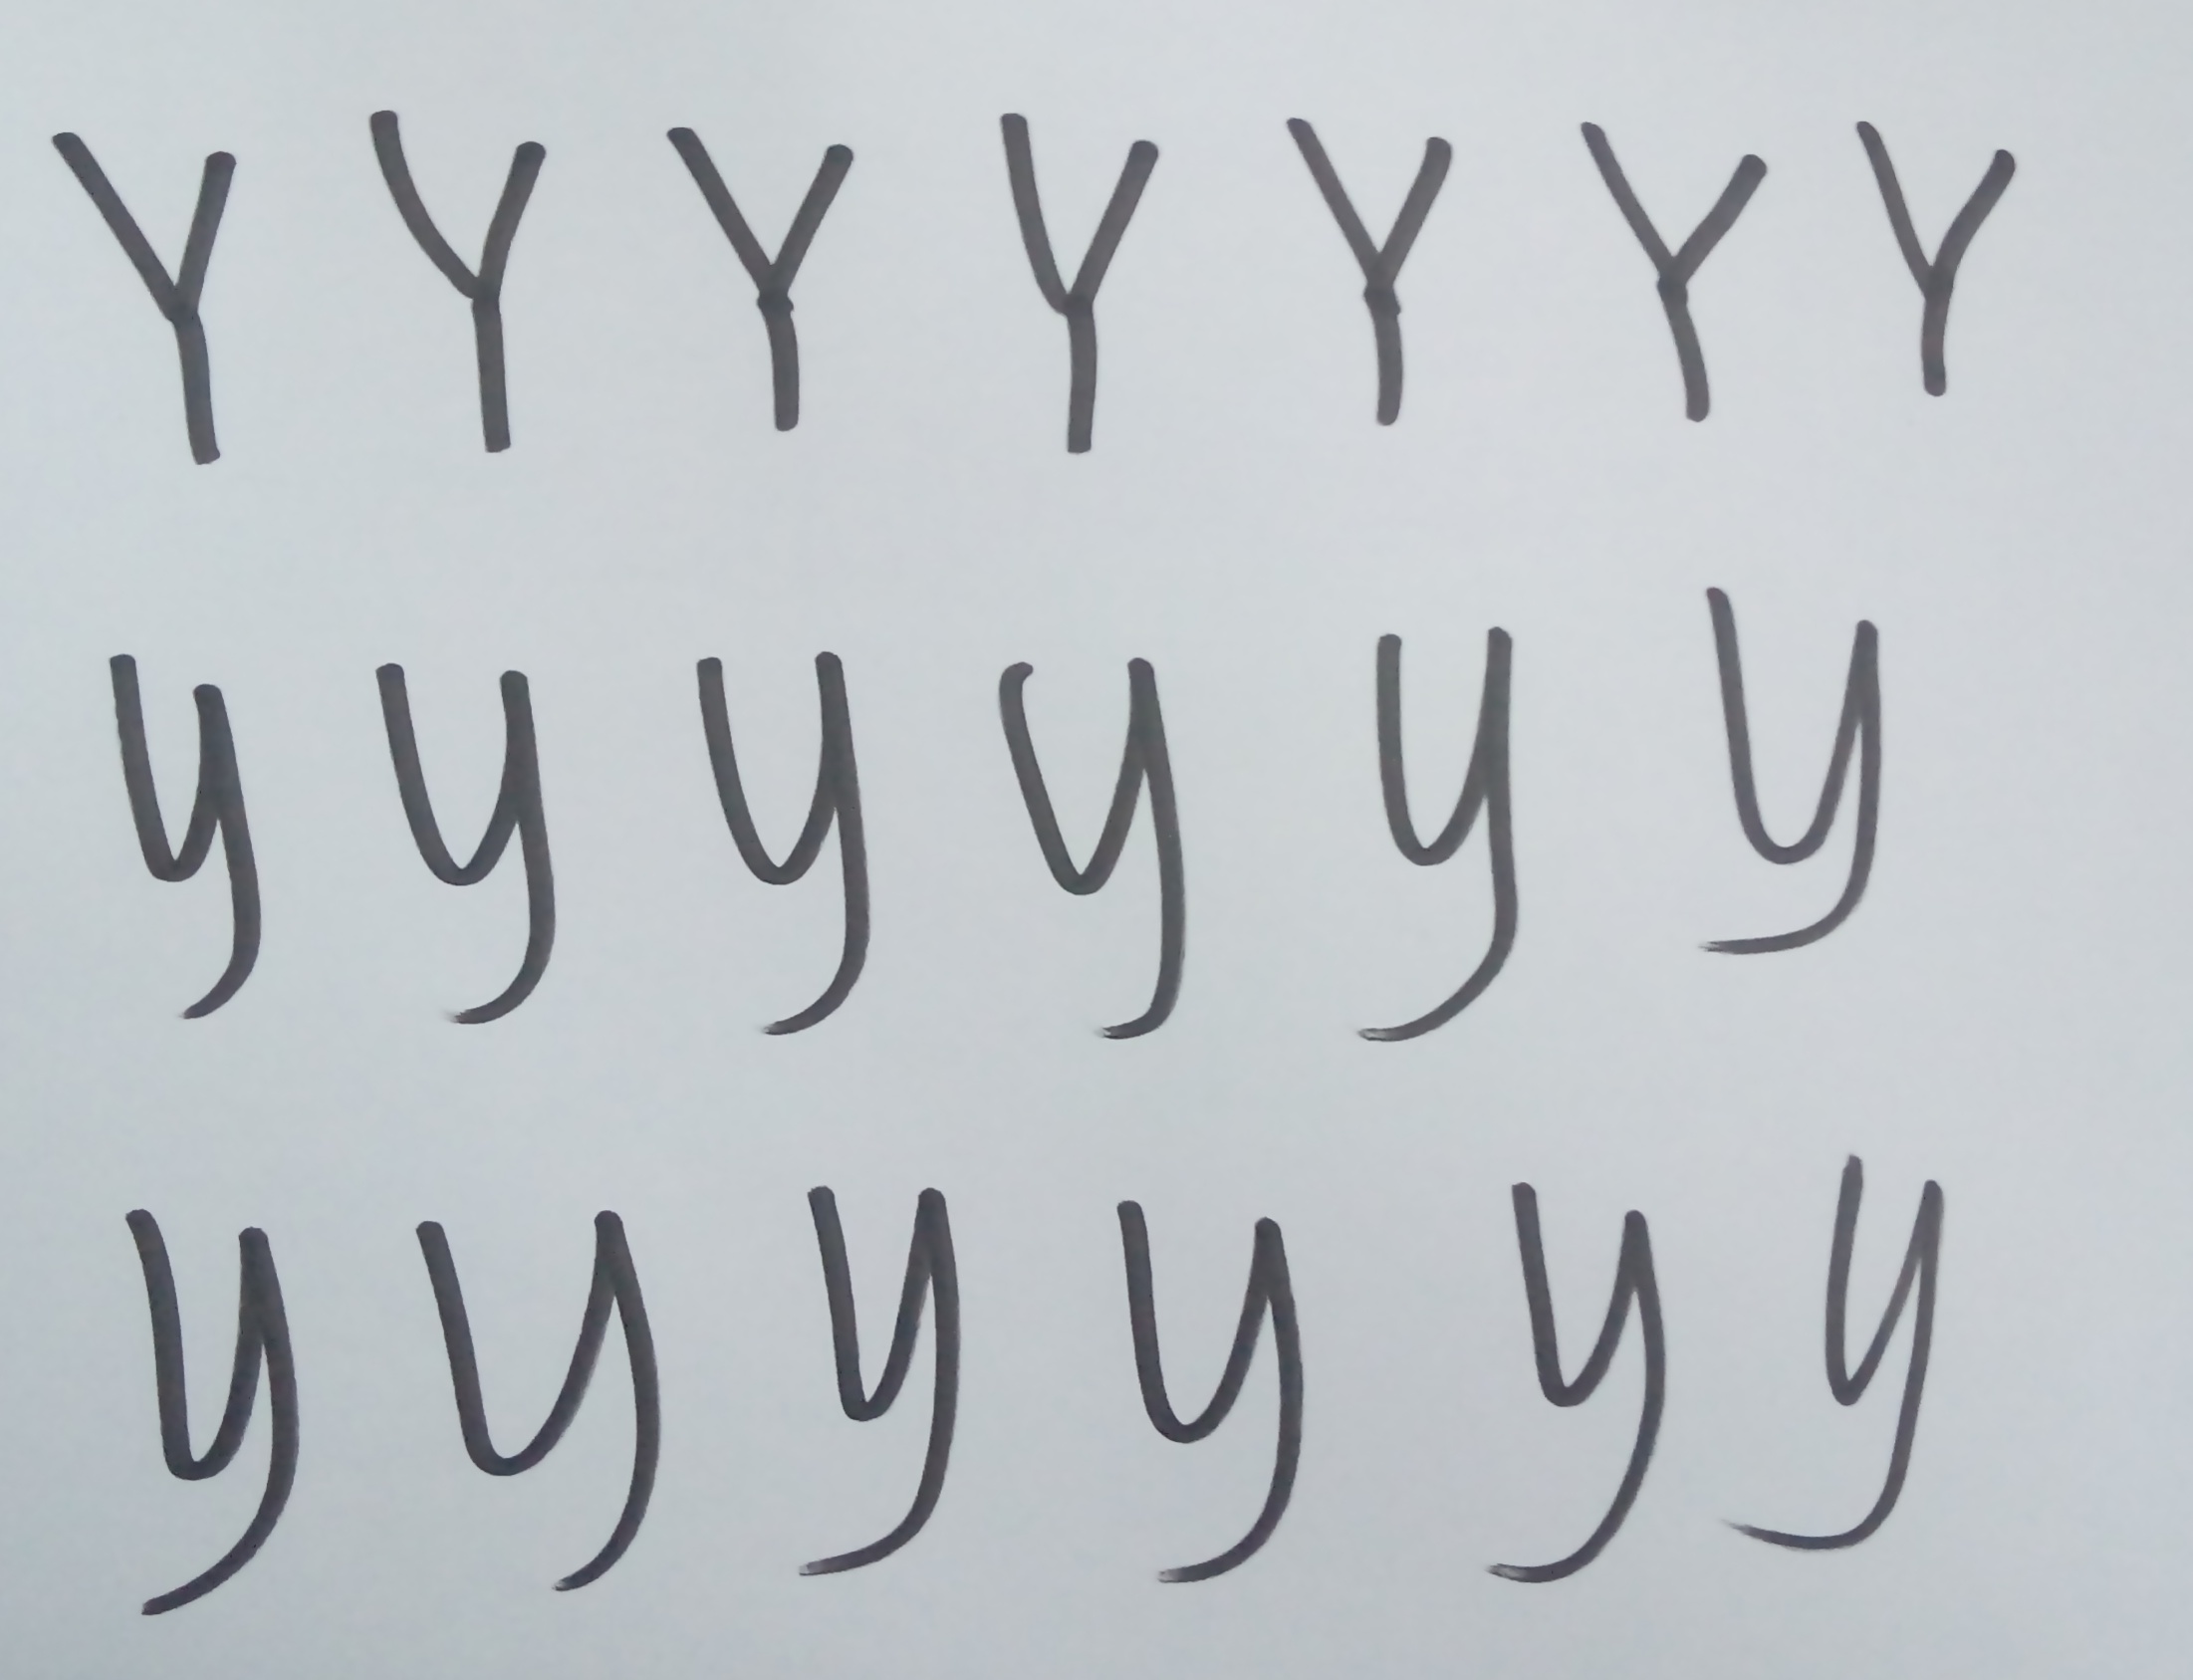 Y Y Y Y Y Y Y
y y y y y y
y y y y y y